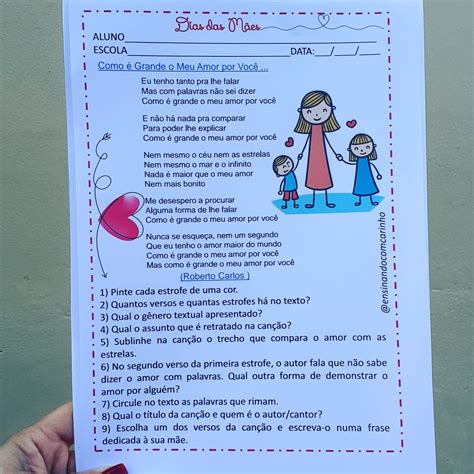 Dias das Mães
ALUNO
ESCOLA DATA: / /
Como é Grande o Meu Amor por Você ...
Eu tenho tanto pra lhe falar
Mas com palavras não sei dizer
Como é grande o meu amor por você
E não há nada pra comparar
Para poder lhe explicar
Como é grande o meu amor por você
Nem mesmo o céu nem as estrelas
Nem mesmo o mar e o infinito
Nada é maior que o meu amor
Nem mais bonito
Me desespero a procurar
Alguma forma de lhe falar
Como é grande o meu amor por você
Nunca se esqueça, nem um segundo
Que eu tenho o amor maior do mundo
Como é grande o meu amor por você
Mas como é grande o meu amor por você
(Roberto Carlos )
@ensinandocomcarinho
1) Pinte cada estrofe de uma cor.
2) Quantos versos e quantas estrofes há no texto?
3) Qual o gênero textual apresentado?
4) Qual o assunto que é retratado na canção?
5) Sublinhe na canção o trecho que compara o amor com as
estrelas.
6) No segundo verso da primeira estrofe, o autor fala que não sabe
dizer o amor com palavras. Qual outra forma de demonstrar o
amor por alguém?
7) Circule no texto as palavras que rimam.
8) Qual o título da canção e quem é o autor/cantor?
9) Escolha um dos versos da canção e escreva-o numa frase
dedicada à sua mãe.